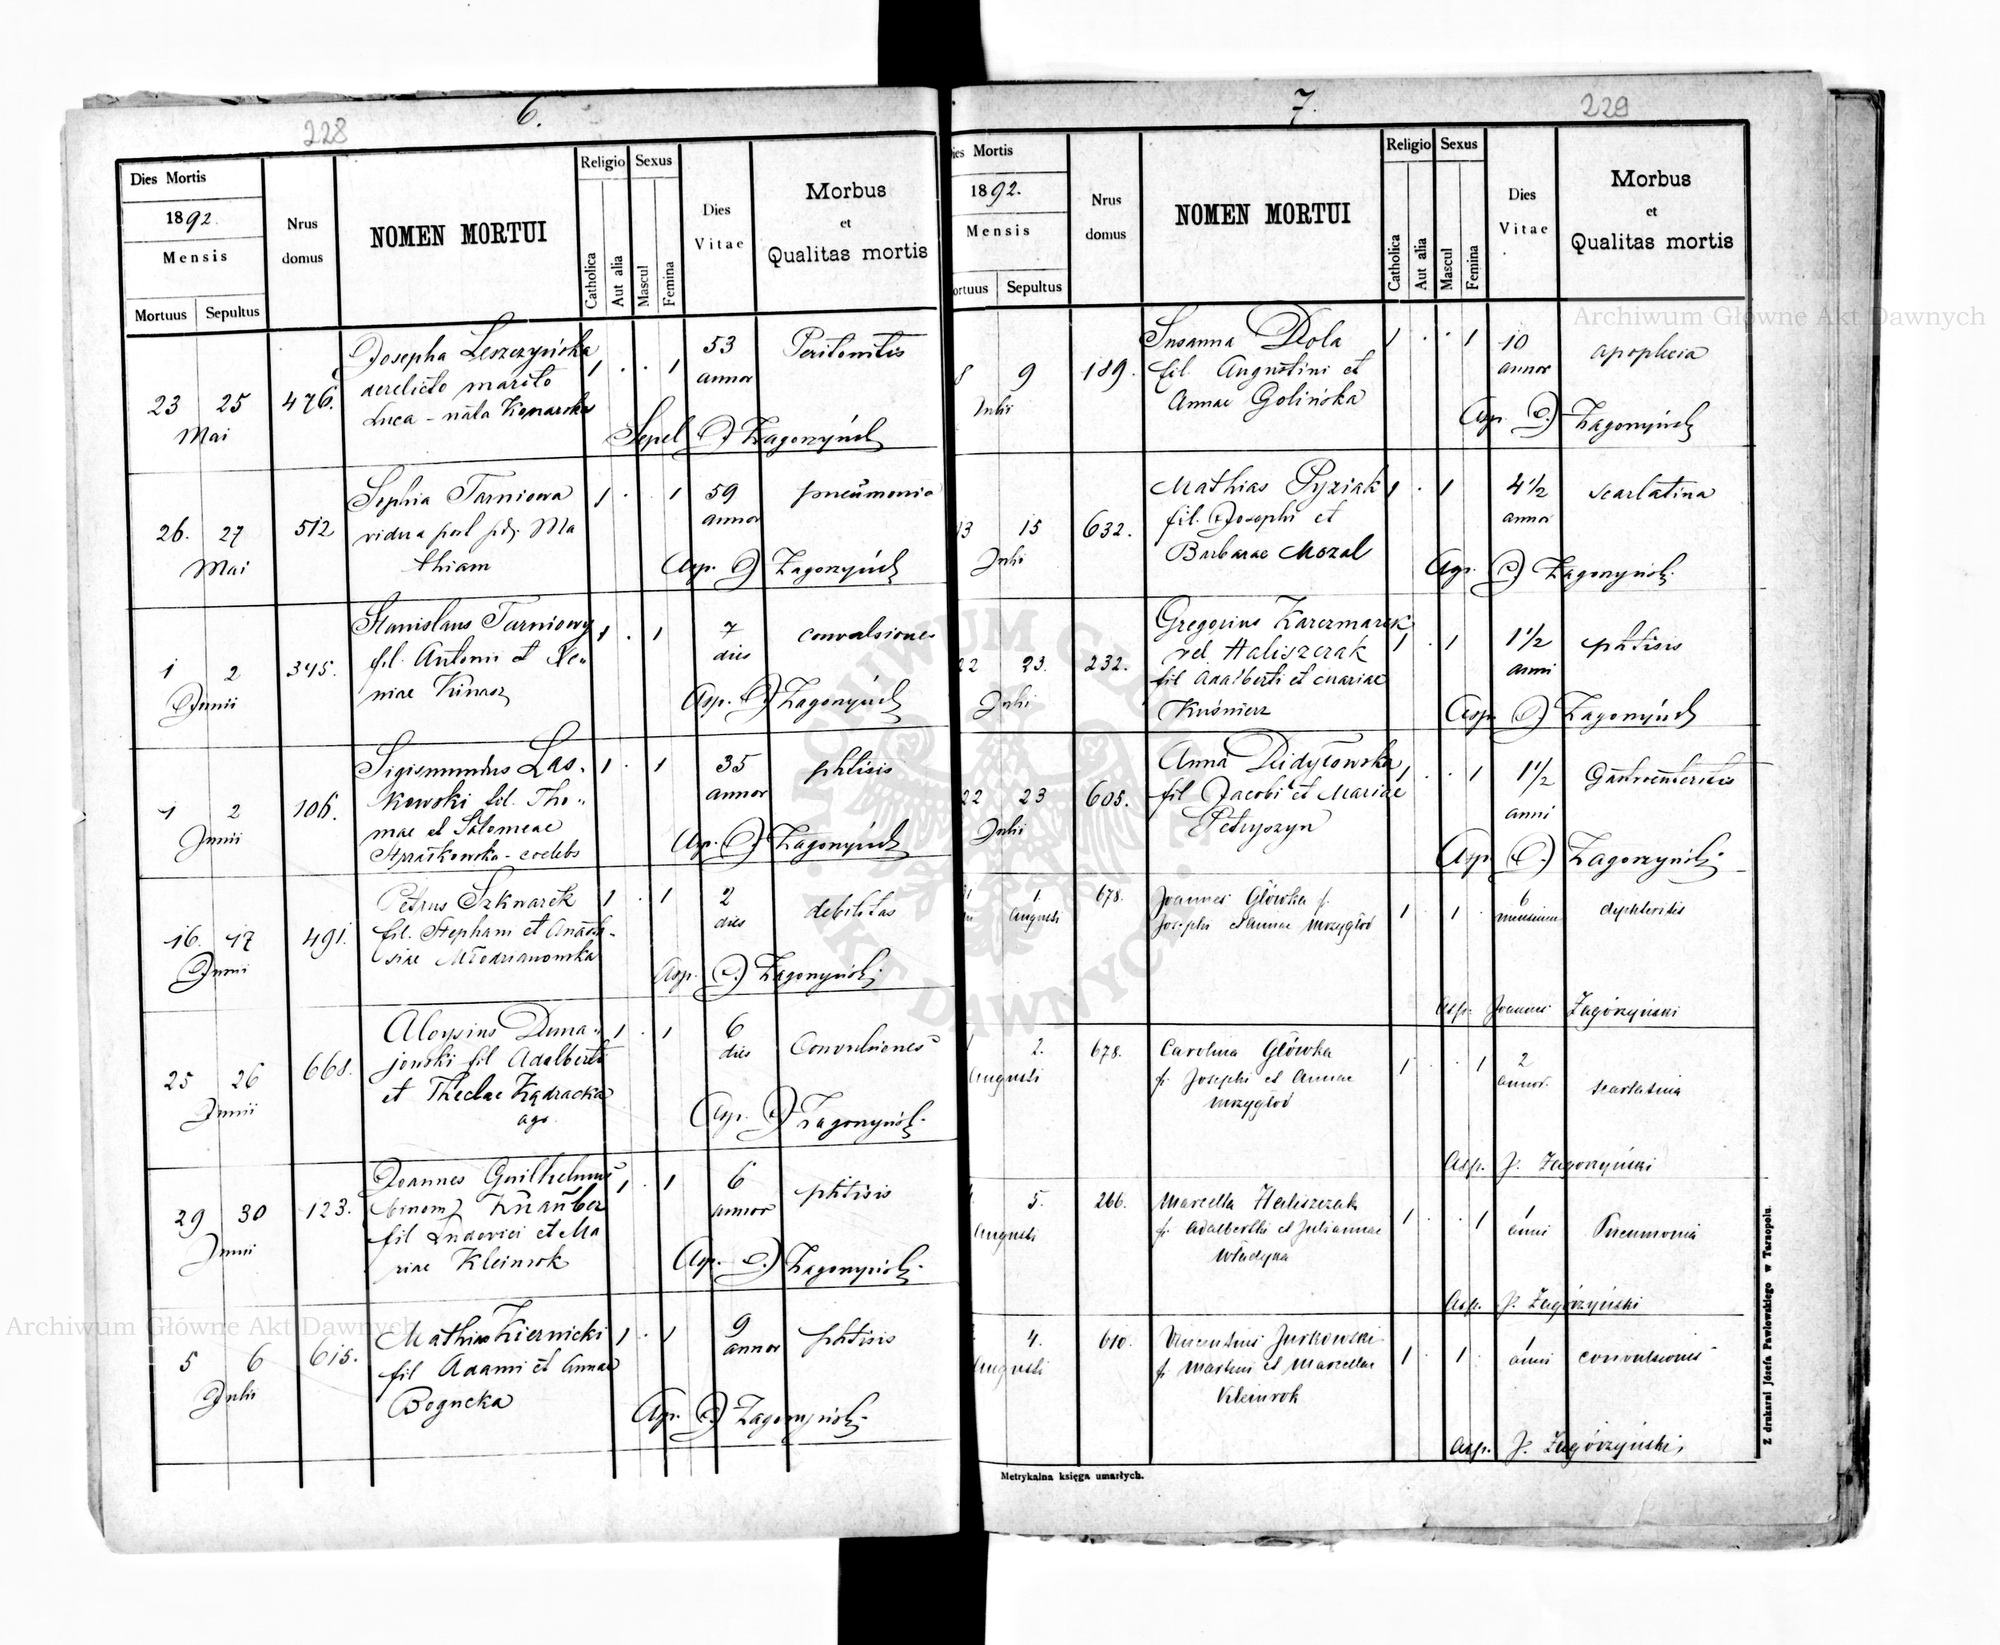 6.
228
Dies Mortis
1892.
Mensis
Mortuus Sepultus
Nrus domus
NOMEN MORTUI
Religio
Catholica
Aut alia
Sexus
Mascul
Femina
Dies Vitae
Morbus
et
Qualitas mortis
Josepha Leszczyńska 1 . . 1 53 Peritonitis
derelicto marito annor
23 25 476. Luca - nata
Mai Sepel J Zagórzyński
Sophia Tarniowa 1 . 1 59 pneumonia
26. 27 512 vidua post Ma annor
Mai thiam Asp. J Zagórzyński
Stanislaus Tarniowy 1 . 1 7 convulsiones
1 2 345. fil. Antonii et Xe„ dies
Junii niae Kinasz Asp. J Zagórzyński
Sigismundus Las„ 1 . 1 35 phtisis
1 2 106. kowski fil. Tho„ annor
Junii mae et Salomeae
coelebs Asp. J Zagórzyński
Petrus Szkwarek 1 . 1 2 debilitas
16. 17 491. fil. Stephani et Anasta- dies
Junii siae Młodzianowska Asp. J Zagórzyński
Aloysius Duna„ 1 . 1 6 Convulsiones
25 26 668. jowski fil Adalberti dies
Junii et Theclae
Asp. J Zagórzyński
Joannes Guilhelmus 1 . 1 6 phtisis
29 30 123. binom Knauber annor
Junii fil Ludovici et Ma
riae Kleinrok Asp. J Zagórzyński
Mathias Kiernicki 1 . 1 9 phtisis
5 6 615. fil Adami et Annae annor
Julii Bogucka
Asp. J Zagórzyński
7.
229
Dies Mortis
1892.
Mensis
Mortuus Sepultus
Nrus domus
NOMEN MORTUI
Religio
Catholica
Aut alia
Sexus
Mascul
Femina
Dies Vitae
Morbus
et
Qualitas mortis
Susanna Dola 1 . . 1 10 apoplexia
8 9 189. fil. Augustini et annor
Julii Annae Golińska Asp. J Zagórzyński
Mathias Pyziak 1 . 1 4 1/2 scarlatina
13 15 632. fil. Josephi et annor
Julii Barbarae Mozal Asp. J Zagórzyński
Gregorius Karczmarek 1 . 1 1 1/2 phtisis
22 23. 232. vel Haliszczak anni
Julii fil Adalberti et Mariae
Kuśnierz Asp J Zagórzyński
Anna Didyłowska 1 . . 1 1 1/2 Gastroenteritis
22 23 605. fil Jacobi et Mariae anni
Julii Petryszyn
Asp J. Zagórzyński
1. 678. Joannes Główka f. 1 1 . 6 dyphteritis
Augusti Josephi et Annae Mrzygłod mensium
Asp. Joannes Zagórzyński
2. 678. Carolina Główka 1 . 1 2 scarlatina
Augusti f. Josephi et Annae annor.
Mrzygłod
Asp. J. Zagórzyński
5. 266. Marcella Haliszczak 1 . . 1 1 Pneumonia
Augusti f. Adalberti et Juliannae anni
Władyka
Asp. J. Zagórzyński
4. 610. Vincentius Jurkowski 1 . 1 . 1 convulsiones
Augusti f. Martini et Marcellae anni
Kleinrok
Asp. J. Zagórzyński
Metrykalna księga umarłych.
Z drukarni Józefa Pawłowskiego w Tarnopolu.
Archiwum Główne Akt Dawnych
Archiwum Główne Akt Dawnych
ARCHIWUM GŁÓWNE AKT DAWNYCH